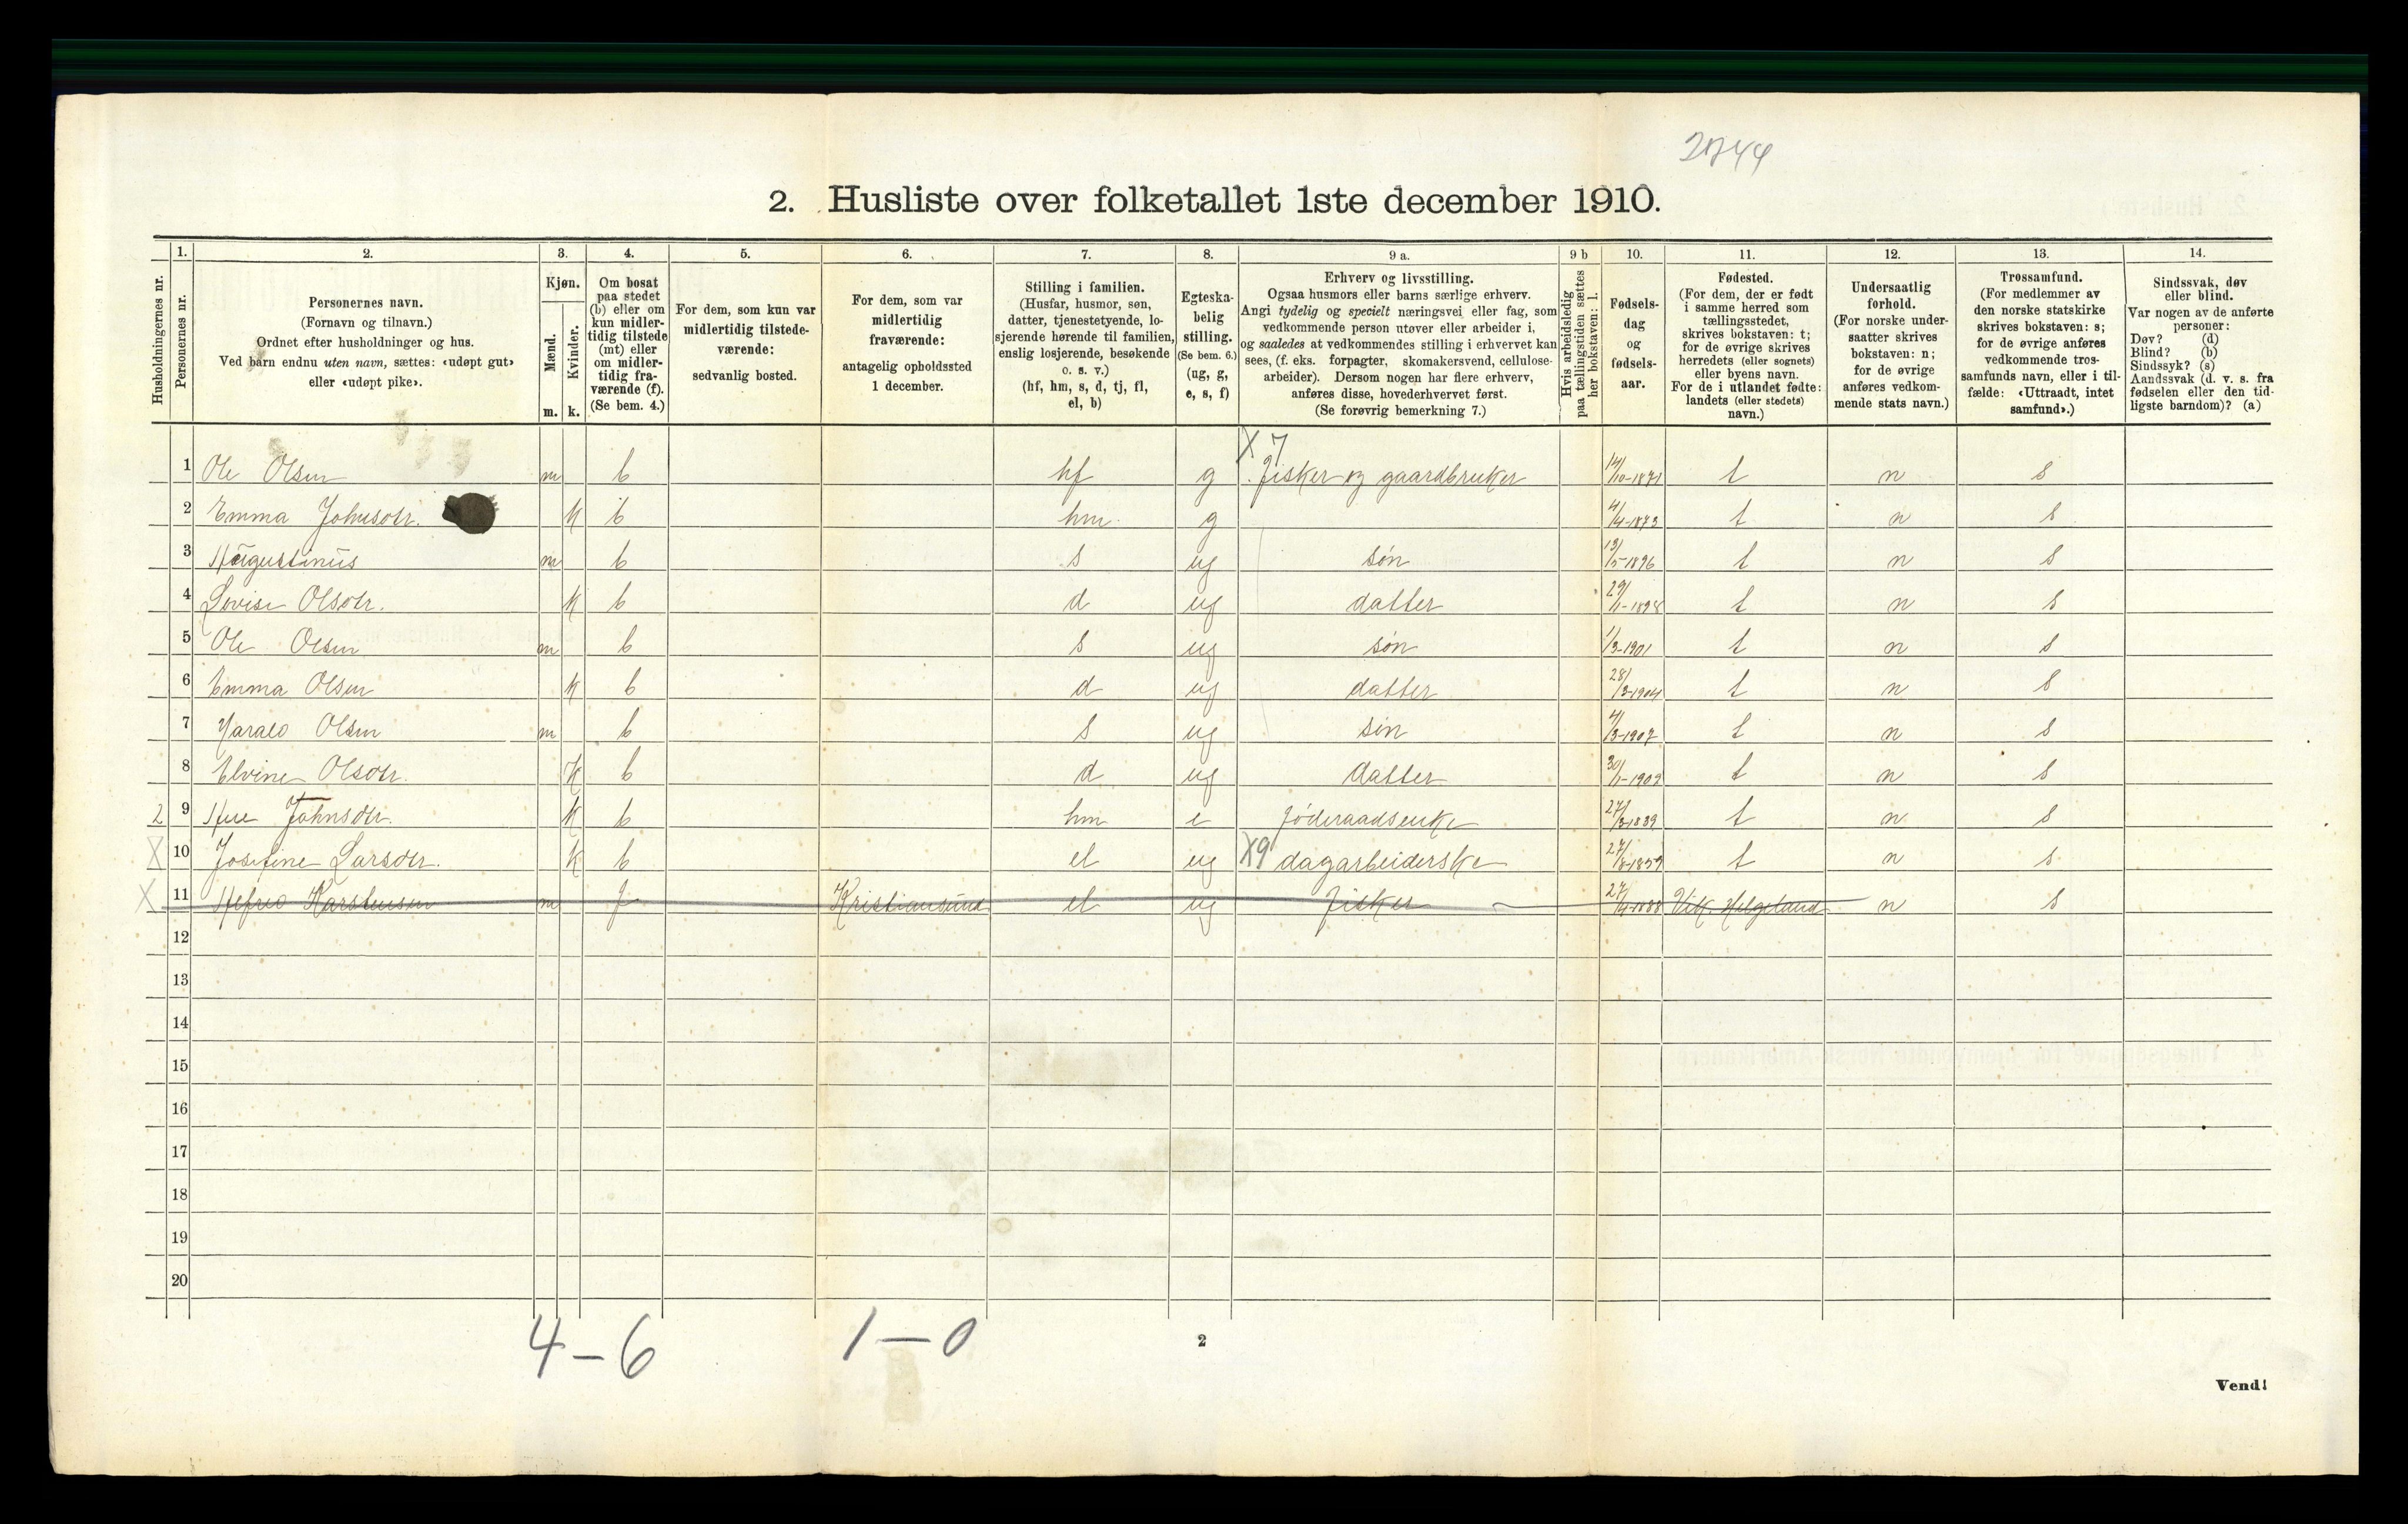 2744
2. Husliste over folketallet 1ste december 1910.
Husholdningernes nr.
1.
Personernes nr.
2.
Personernes navn.
(Fornavn og tilnavn.)
Ordnet efter husholdninger og hus.
Ved barn endnu uten navn, sættes: «udøpt gut»
eller «udøpt pike».
3.
Kjøn.
Mænd.
Kvinder.
m. k.
4.
Om bosat
paa stedet
(b) eller om
kun midler-
tidig tilstede
(mt) eller
om midler-
tidig fra-
værende (f).
(Se bem. 4.)
5.
For dem, som kun var
midlertidig tilstede-
værende:
sedvanlig bosted.
6.
For dem, som var
midlertidig
fraværende:
antagelig opholdssted
1 december.
7.
Stilling i familien.
(Husfar, husmor, søn,
datter, tjenestetyende, lo-
sjerende hørende til familien,
enslig losjerende, besøkende
o. s. v.)
(hf, hm, s, d, tj, fl,
el, b)
8.
Egteska-
belig
stilling.
(Se bem. 6.)
(ug, g,
e, s, f)
9 a.
Erhverv og livsstilling.
Ogsaa husmors eller barns særlige erhverv.
Angi tydelig og specielt næringsvei eller fag, som
vedkommende person utøver eller arbeider i,
og saaledes at vedkommendes stilling i erhvervet kan
sees, (f. eks. forpagter, skomakersvend, cellulose-
arbeider). Dersom nogen har flere erhverv,
anføres disse, hovederhvervet først.
(Se forøvrig bemerkning 7.)
9 b
Hvis arbeidsledig
paa tællingstiden sættes
her bokstaven: l.
10.
Fødsels-
dag
og
fødsels-
aar.
11.
Fødested.
(For dem, der er født
i samme herred som
tællingsstedet,
skrives bokstaven: t;
for de øvrige skrives
herredets (eller sognets)
eller byens navn.
For de i utlandet fødte:
landets (eller stedets)
navn.)
12.
Undersaatlig
forhold.
(For norske under-
saatter skrives
bokstaven: n;
for de øvrige
anføres vedkom-
mende stats navn.)
13.
Trossamfund.
(For medlemmer av
den norske statskirke
skrives bokstaven: s;
for de øvrige anføres
vedkommende tros-
samfunds navn, eller i til-
fælde: «Uttraadt, intet
samfund».)
14.
Sindssvak, døv
eller blind.
Var nogen av de anførte
personer:
Døv? (d)
Blind? (b)
Sindssyk? (s)
Aandssvak (d. v. s. fra
fødselen eller den tid-
ligste barndom)? (a)
X 7
1 Ole Olsen m b hf g fisker og gaardbruker 14/10-1871 t n s
2 Emma Johnsdtr. k b hm g 4/4-1873 t n s
3 Augustinus m b s ug søn 13/5-1896 t n s
4 Lovise Olsdtr. k b d ug datter 29/11-1898 t n s
5 Ole Olsen m b s ug søn 1/3-1901 t n s
6 Emma Olsen k b d ug datter 28/3-1904 t n s
7 Harald Olsen m b s ug søn 4/3-1907 t n s
8 Elvine Olsdtr. k b d ug datter 30/1-1909 t n s
2 9 Johnsdtr. k b hm e føderaadsenke 27/3-1839 t n s
X 10 Josefine Larsdtr. k b el ug X9 dagarbeiderske 27/8-1859 t n s
X 11 Alfred Karstensen m f Kristiansund el ug fisker 27/4-1888 Vik. Helgeland n s
12
13
14
15
16
17
18
19
20
4-6 1-0
2
Vend!